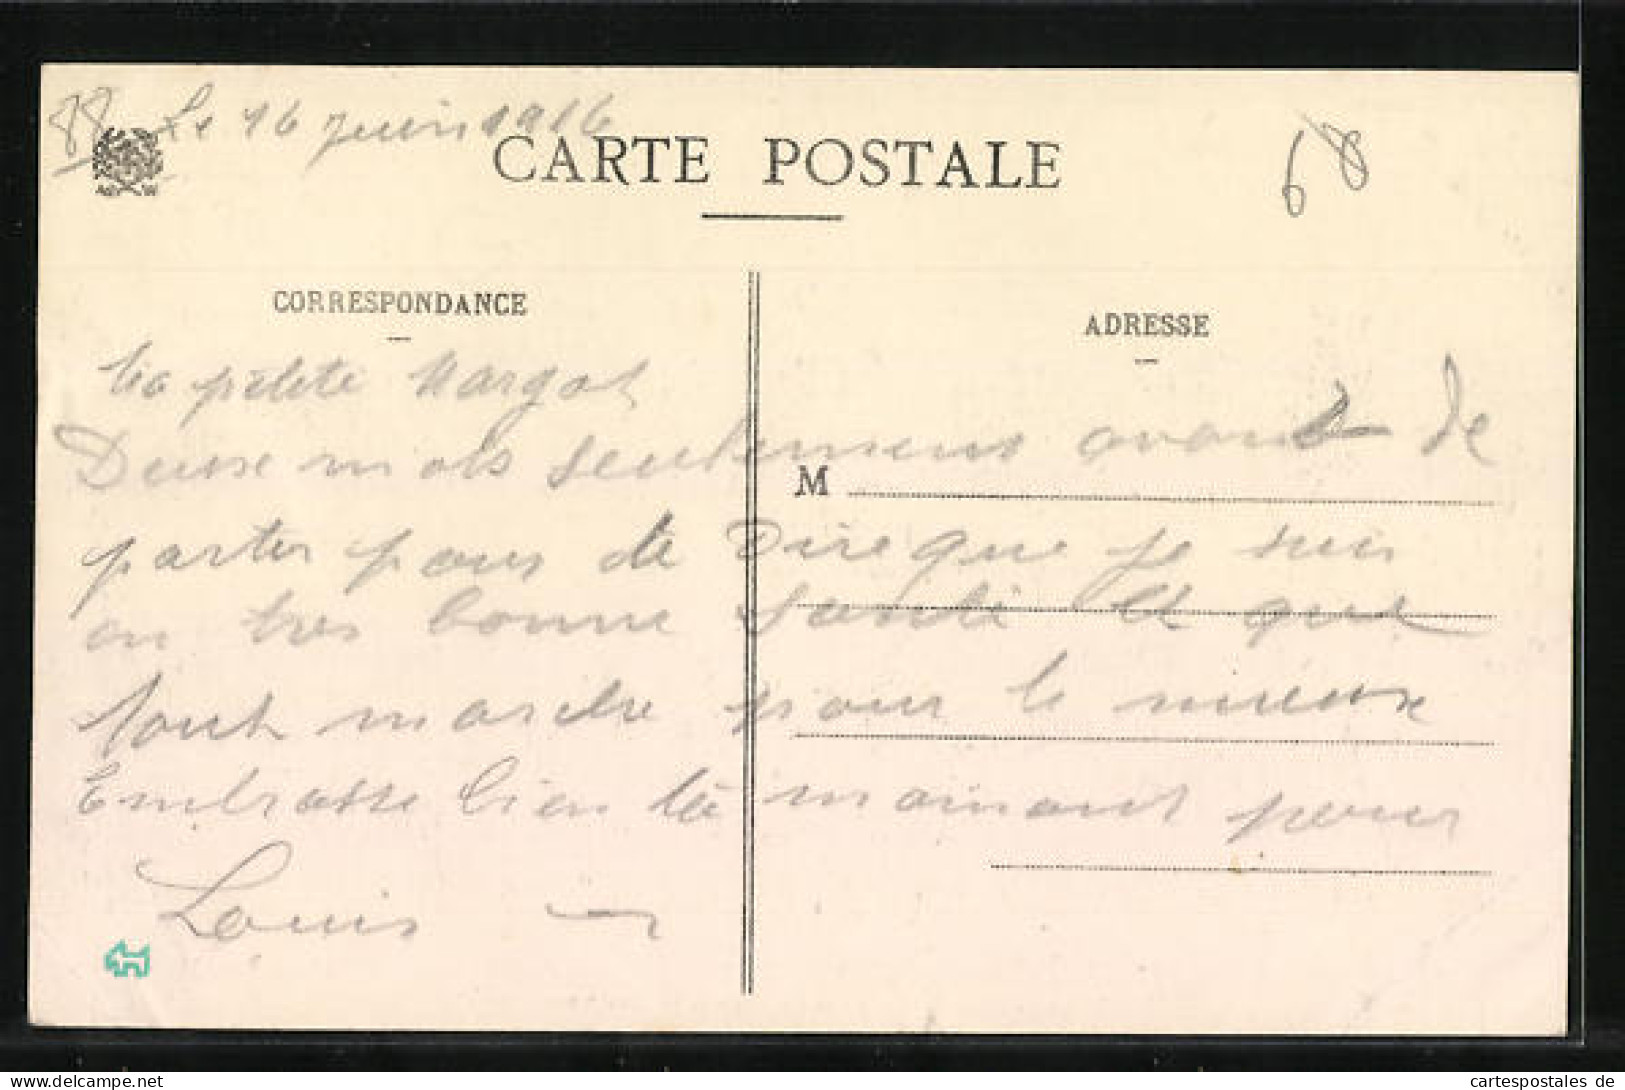 88 Le 16 juin 1916
CARTE POSTALE
68
CORRESPONDANCE
ADRESSE
M
Ma petite Margot
Deuxe mots seulement avant de
partir pour te Dire que je suis
en tres bonne santé et que
tout marche pour le mieuxe
Embrasse bien ta maman pour
Louis
cartespostales de
cartespostales.de